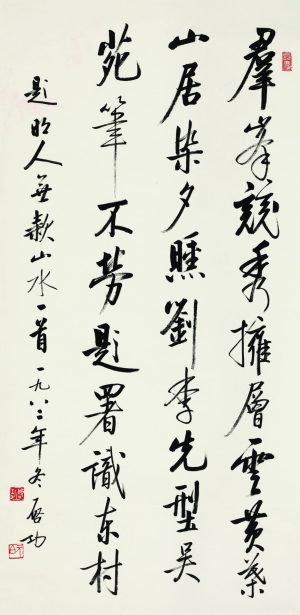 羣峯競秀擁層雲黃葉
山居染夕曛劉李先型吴
苑筆不勞題署識东村
题明人無款山水一首一九八二年冬启功